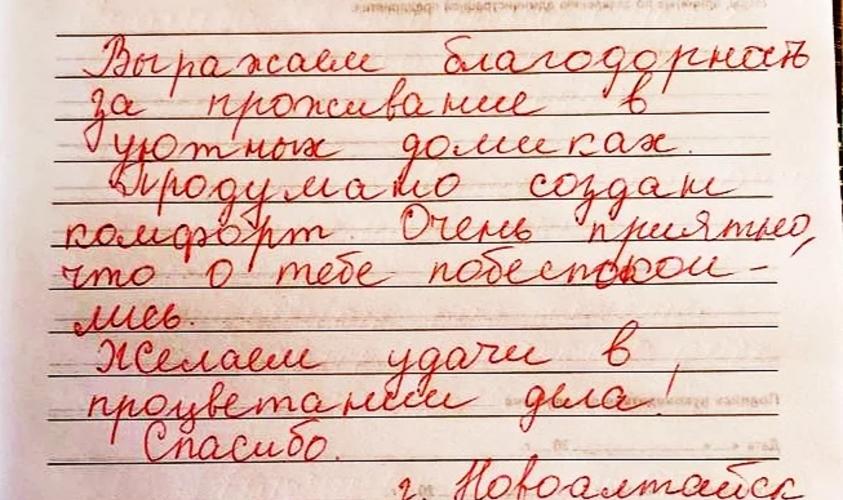 Выражаем благодорность
за проживание в
уютных домиках.
Продумано создан
комфорт. Очень приятно,
что о тебе побеспокои-
лись.
Желаем удачи в
процветании дела!
Спасибо.
г. Новоалтайск